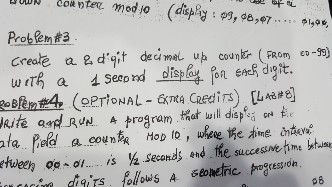 DOWN counter mod 10 (display: 09, 08, 07 ..... 01, 00,
Problem #3.
Create a 2 digit decimal up counter (FROM 00-99)
with a 1 second display for each digit.
Problem #4. (OPTIONAL - EXTRA CREDITS) [LAB#8]
Write and RUN A program that will display on the
data field a counter MOD 10, where the time interval
between 00-01..... is 1/2 seconds and the successive time between
digits follows A geometric progression.
08